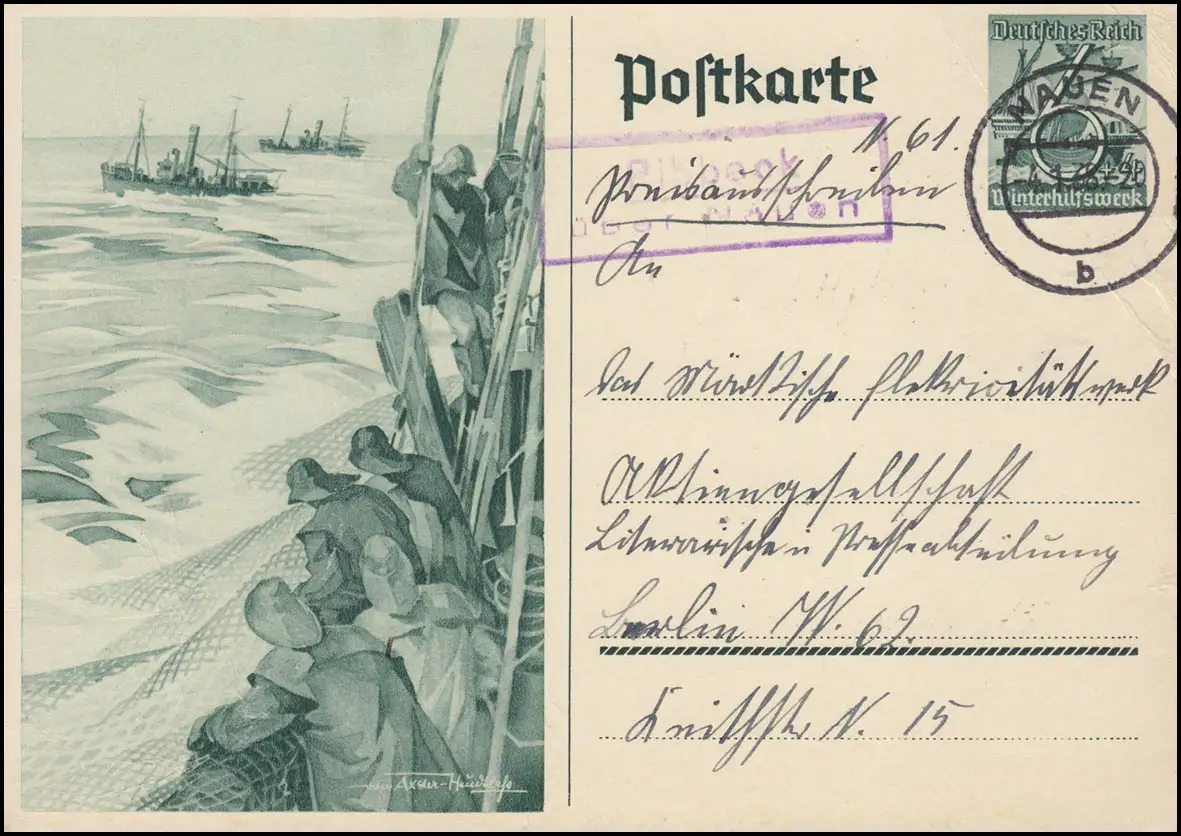 Postkarte
Deutsches Reich
Winterhilfswerk
NAUEN
4.1.38.
b
Ribbeck
über Nauen
N. 61.
Preisausschreiben
An
das Märkische Elektricitätswerk
Aktiengesellschaft
Literarische u Presseabteilung
Berlin W. 62.
Keithstr N. 15
Axster-Heudtlaß